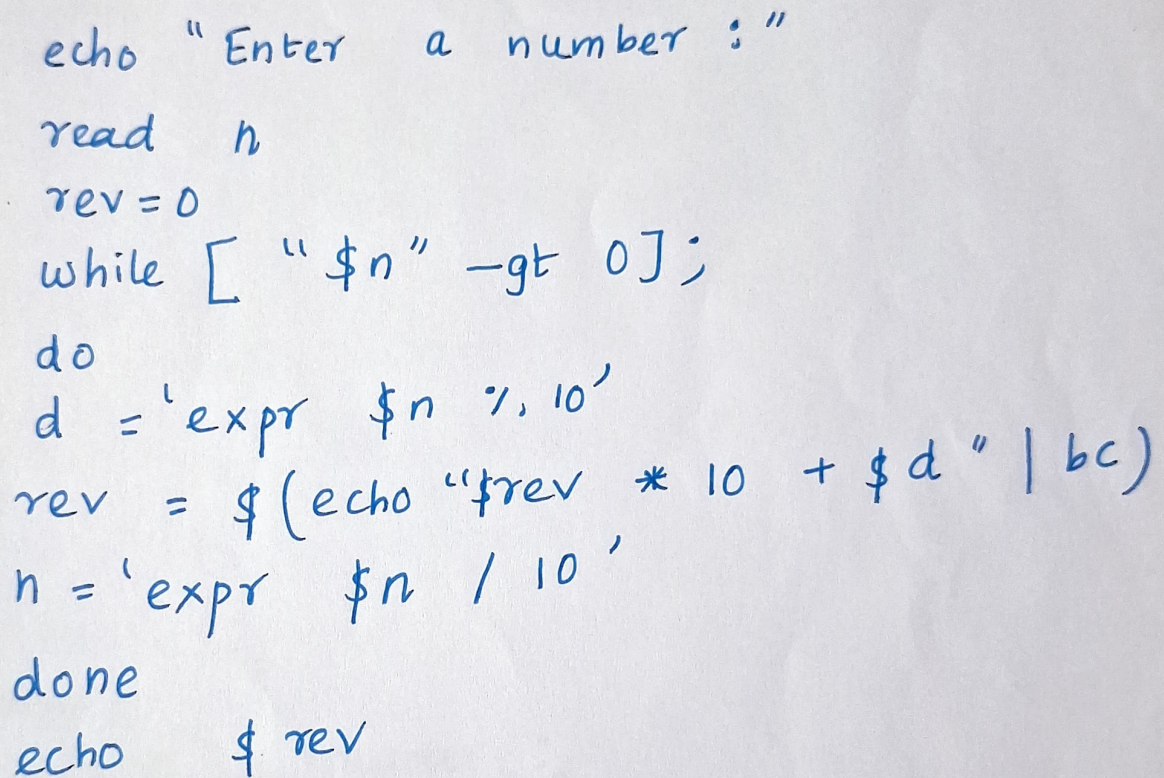 echo "Enter a number :"
read n
rev=0
while [ "$n" -gt 0];
do
d ='expr $n % 10'
rev = $(echo "$rev * 10 + $d" | bc)
n ='expr $n / 10'
done
echo $ rev